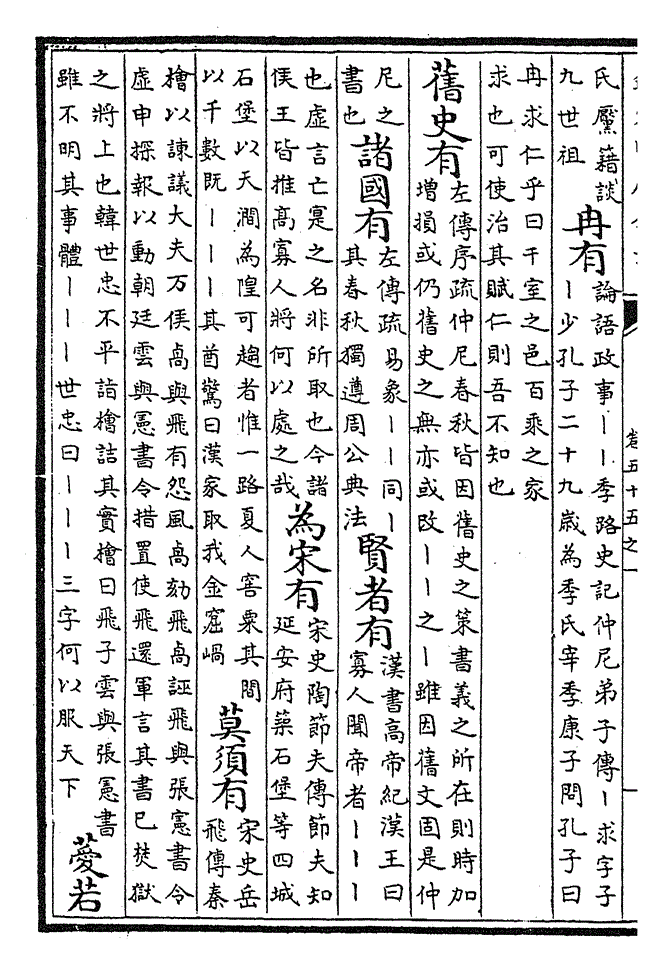 氏黶籍談
九世祖
冉有
論語政事｜｜季路史記仲尼弟子傳｜求字子
｜少孔子二十九歲為季氏宰季康子問孔子曰
冉求仁乎曰千室之邑百乘之家
求也可使治其賦仁則吾不知也
舊史有
左傳序疏仲尼春秋皆因舊史之策書義之所在則時加
增損或仍舊史之無亦或改｜｜之｜雖因舊文固是仲
尼之
書也
諸國有
左傳疏易象｜｜同｜
其春秋獨遵周公典法
賢者有
漢書高帝紀漢王曰
寡人聞帝者｜｜｜
也虛言亡寔之名非所取也今諸
侯王皆推高寡人將何以處之哉
為宋有
宋史陶節夫傳節夫知
延安府築石堡等四城
石堡以天澗為隍可趨者惟一路夏人窖粟其間
以千數既｜｜｜其酋驚曰漢家取我金窟堝
莫須有
宋史岳
飛傳秦
檜以諫議大夫万俟卨與飛有怨風卨劾飛卨誣飛與張憲書令
虛申探報以動朝廷雲與憲書令措置使飛還軍言其書已焚獄
之將上也韓世忠不平詣檜詰其實檜曰飛子雲與張憲書
雖不明其事體｜｜｜世忠曰｜｜｜三字何以服天下
薆若
卷五十五之一